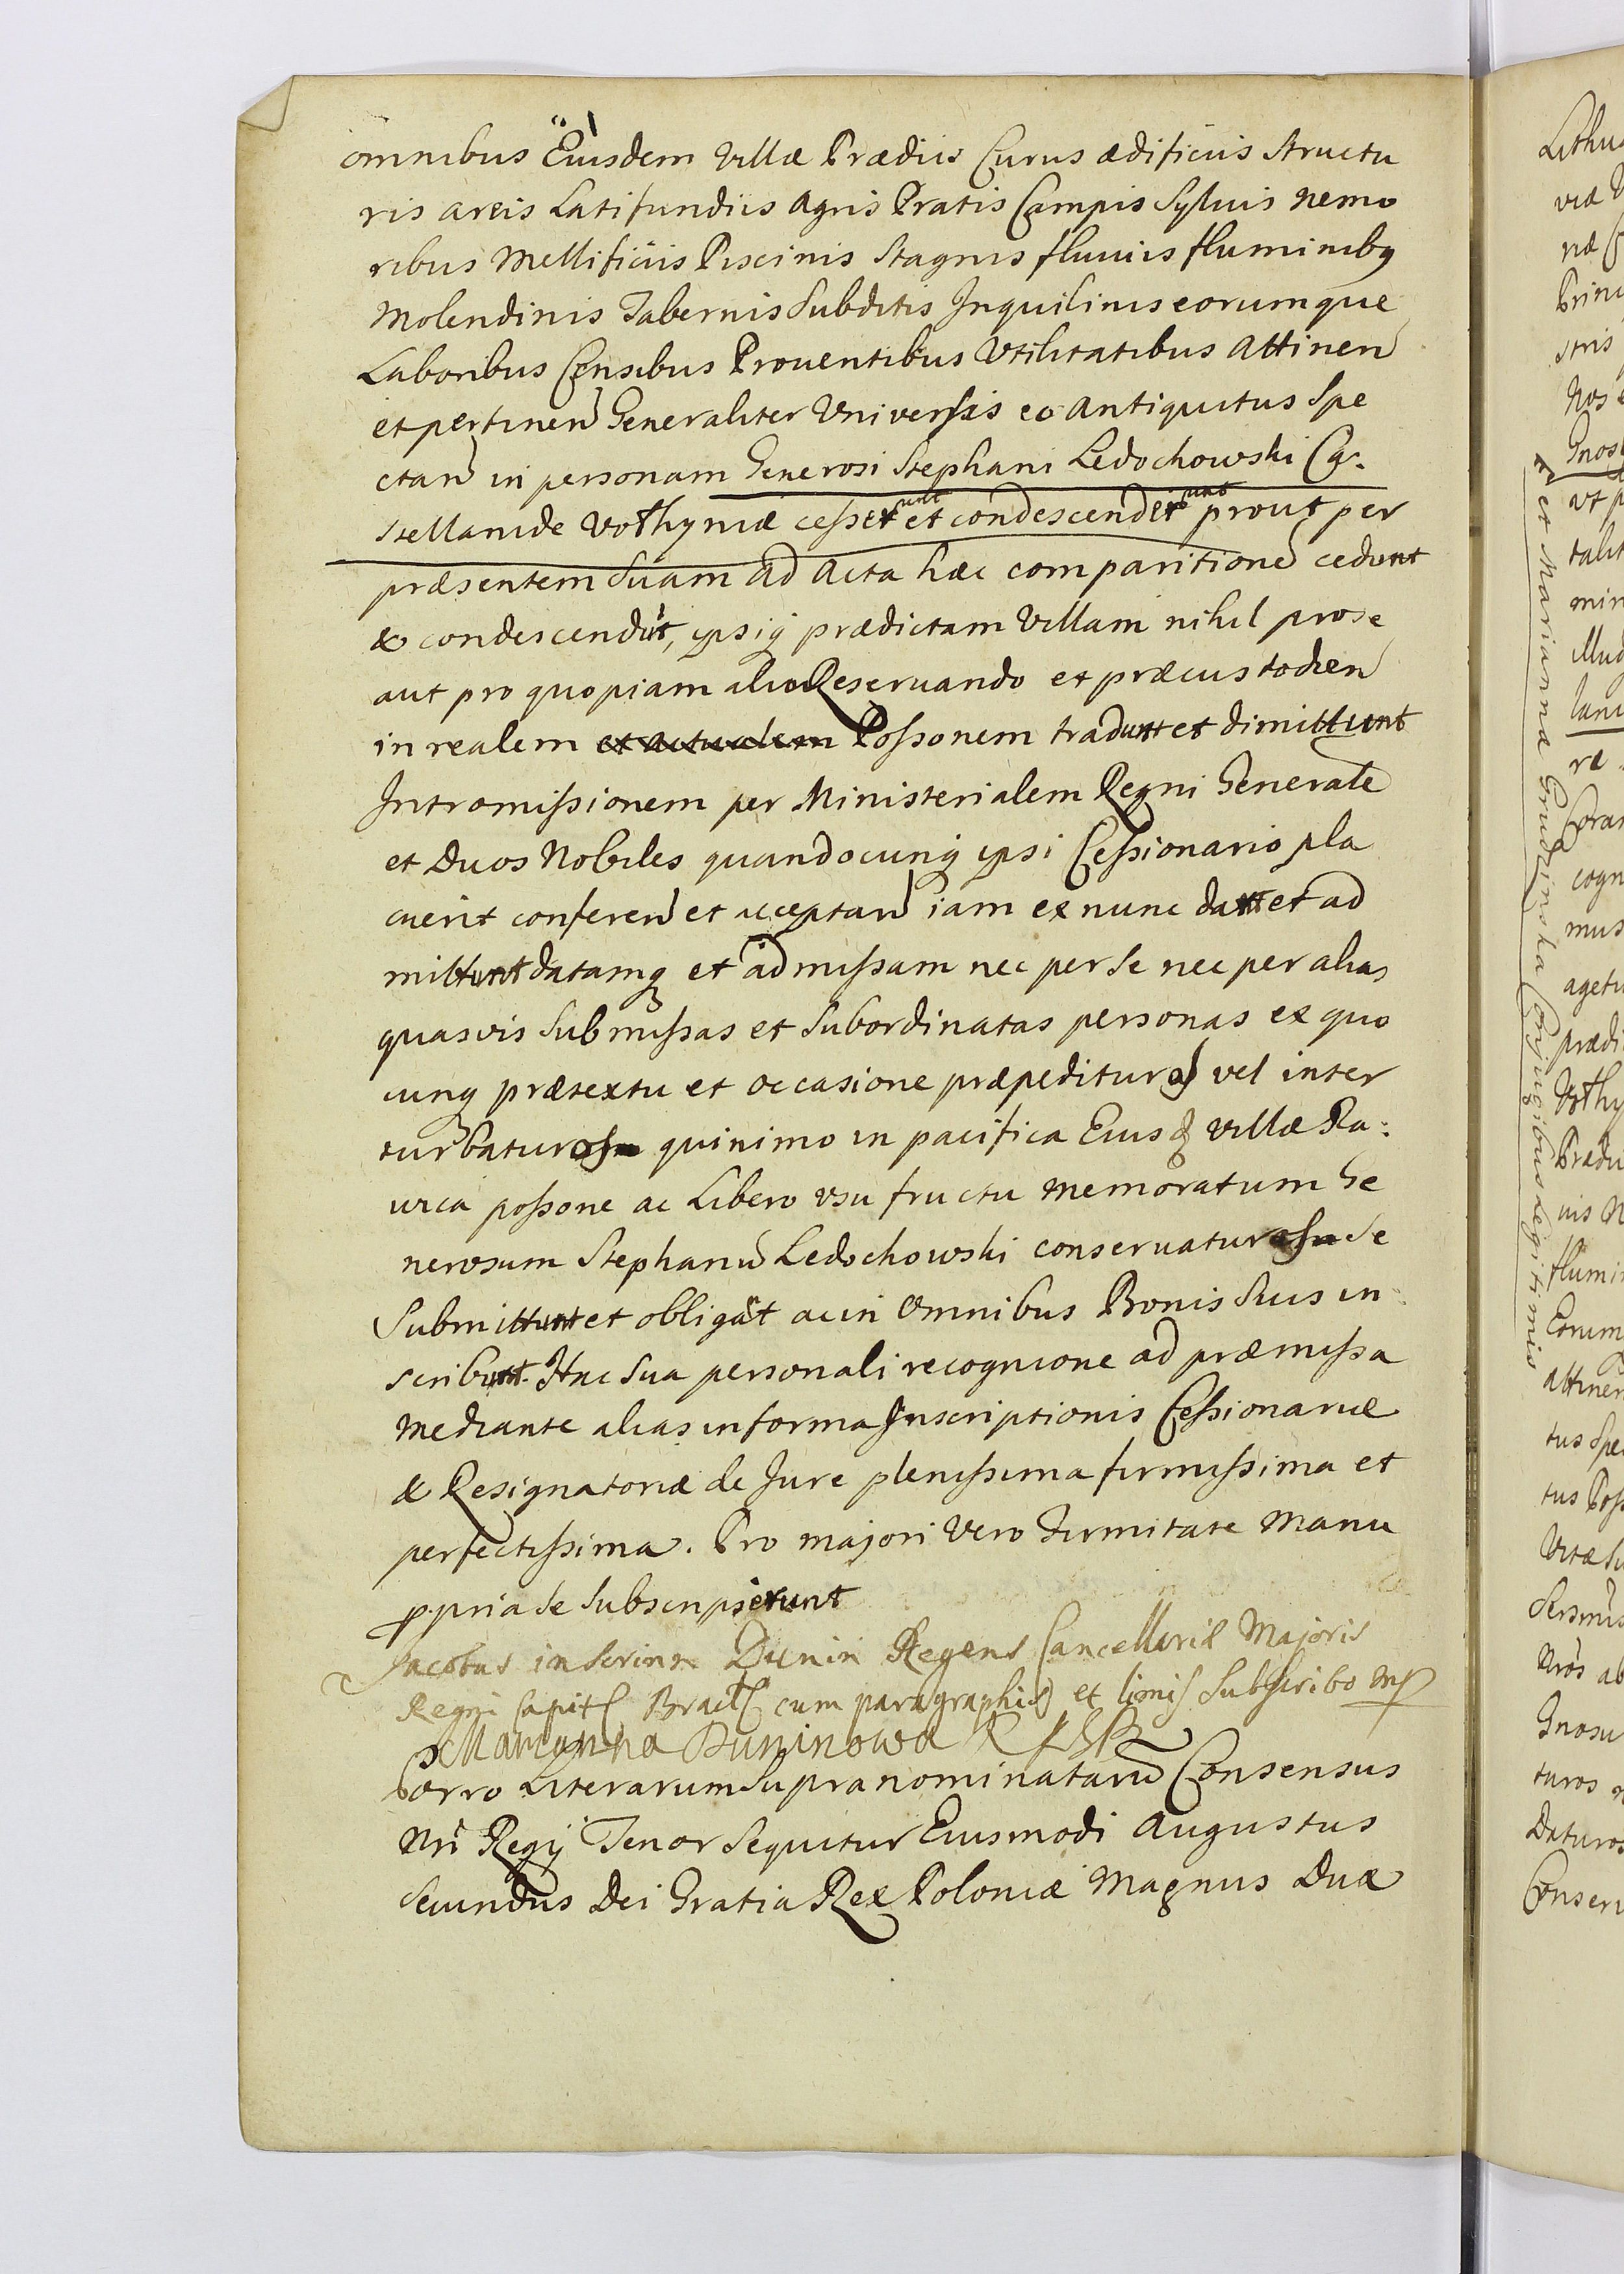 omnibus Eiusdem Villæ Prædiis Curiis ædificiis Structu
ris areis Latifundiis Agris Pratis Campis Syluis nemo
ribus Mellificiis Piscinis Stagnis fluuiis fluminibq
Molendinis Tabernis Subditis Inquilinis eorumque
Laboribus Censibus Prouentibus Vtilitatibus Attinen
et pertinen Generaliter Vniversis eo Antiquitus Spe
ctan in personam Generosi Stephani Ledochowski Ca:
stellanide Volhyniæ cesserunt et condescenderunt prout per
præsentem Suam ad Acta hæc comparitione cedunt
& condescendut, ipsiq prædictam Villam nihil pro se
aut pro quopiam alio Reseruando et præcustodien
in realem et actualem Possonem tradunt et dimittunt
Intromissionem per Ministerialem Regni Generale
et Duos Nobiles quandocunq ipsi Cessionario pla
cuerit conferen et acceptan iam ex nunc dant et ad
mittunt datamq et admissam nec per Se nec per alias
quasvis Submissas et Subordinatas personas ex quo
cunq prætextu et occasione præpedituros vel inter
turbaturos quinimo in pacifica Eiusd Villæ Ra:
possone ac Libero vsu fructu memoratum Ge
nerosum Stephanu Ledochowski conseruaturos Se
Submittunt et obligat ac in Omnibus Bonis Suis in
scribunt. Hac Sua personali recognicone ad præmissa
Mediante alias in forma Inscriptionis Cessionariæ
& Resignatoriæ de Jure plenissima firmissima et
perfectissima. Pro majori Vero Firmitate Manu
ppria Se Subscripserunt
Jacobus in Skrinn Dunin Regens Cancellariæ Majoris
Regni Capit Bract cum paragraphis et limis Subscribo mp
Marianna Duninowa R K
Porro Literarum Supranominataru Consensus
Nri Regij Tenor Sequitur Eiusmodi Augustus
Secundus Dei Gratia Rex Poloniæ Magnus Dux
et Marianna Grudzinska Conjugibus Legitimis